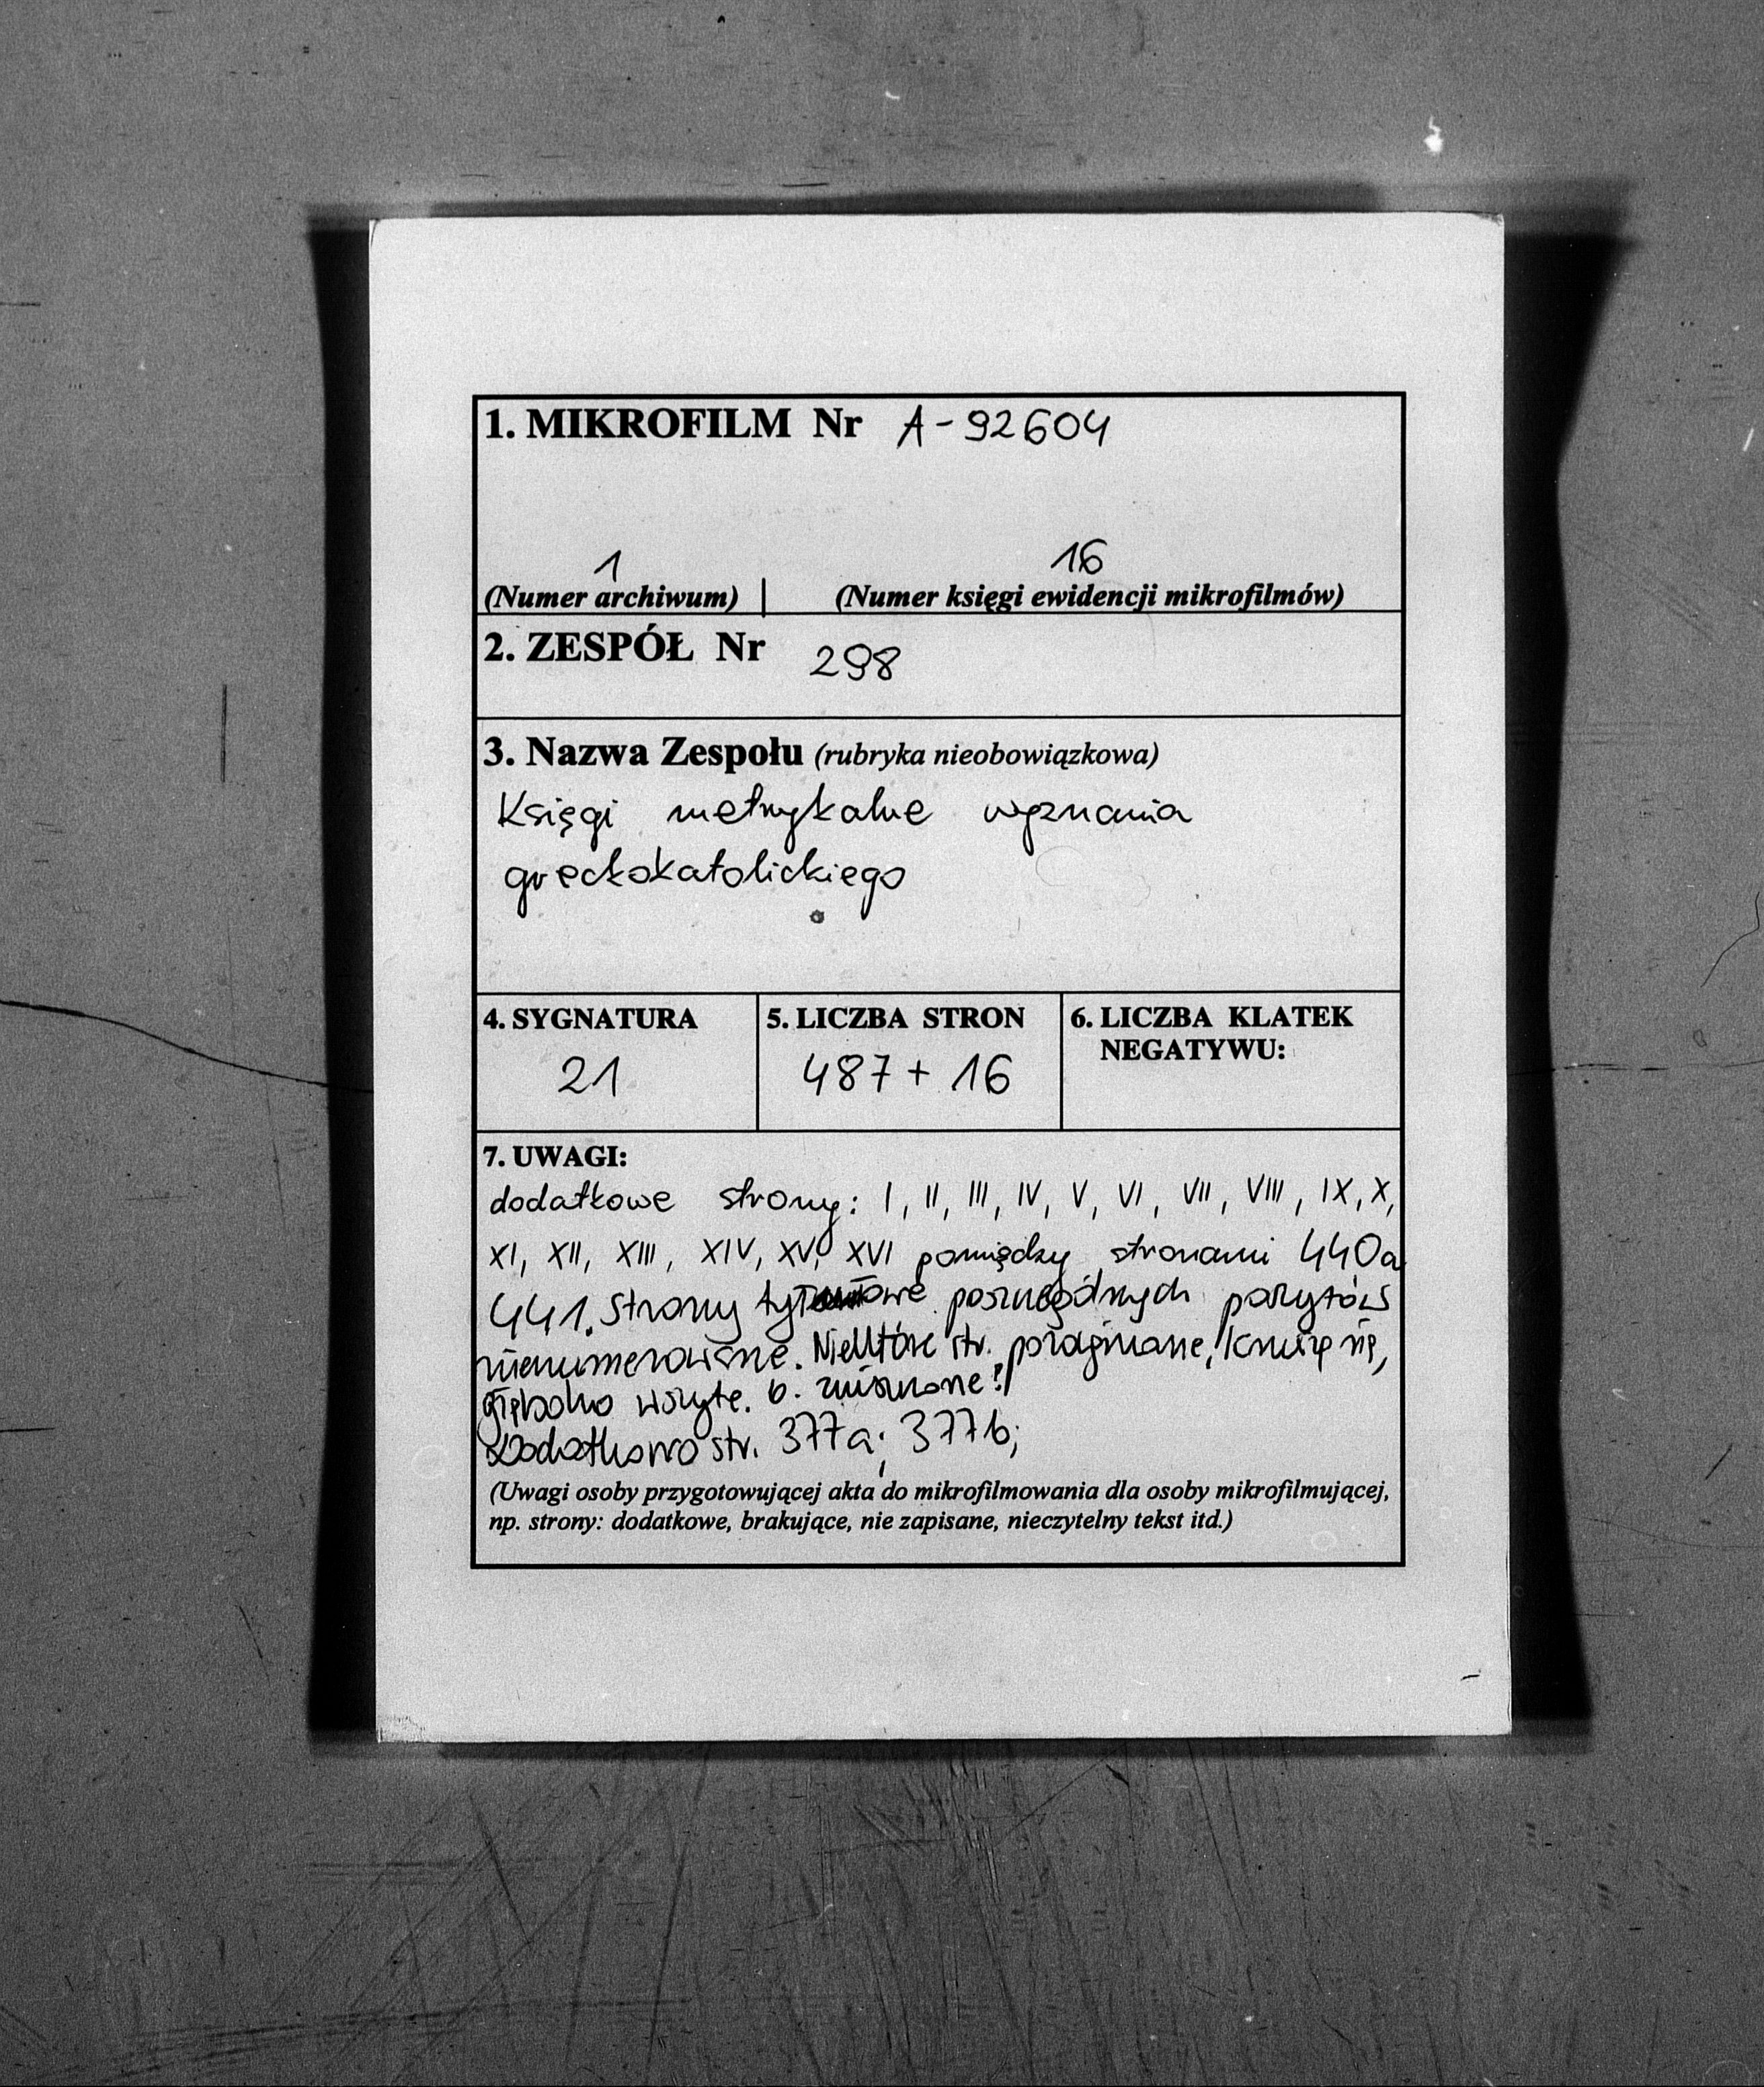 1. MIKROFILM Nr A-92604
1 16
(Numer archiwum) | (Numer księgi ewidencji mikrofilmów)
2. ZESPÓŁ Nr 298
3. Nazwa Zespołu (rubryka nieobowiązkowa)
Księgi metrykalne wyznania
greckokatolickiego
4. SYGNATURA
21
5. LICZBA STRON
487 + 16
6. LICZBA KLATEK
NEGATYWU:
7. UWAGI:
dodatkowe strony: I, II, III, IV, V, VI, VII, VIII, IX, X,
XI, XII, XIII, XIV, XV, XVI pomiędzy stronami 440a
441. Strony tytułowe poszczególnych poszytów
nienumerowane. Niektóre str. pozaginane, kruszą się,
głęboko wszyte. b. zniszczone!
Dodatkowo str. 377a; 377b;
(Uwagi osoby przygotowującej akta do mikrofilmowania dla osoby mikrofilmującej,
np. strony: dodatkowe, brakujące, nie zapisane, nieczytelny tekst itd.)